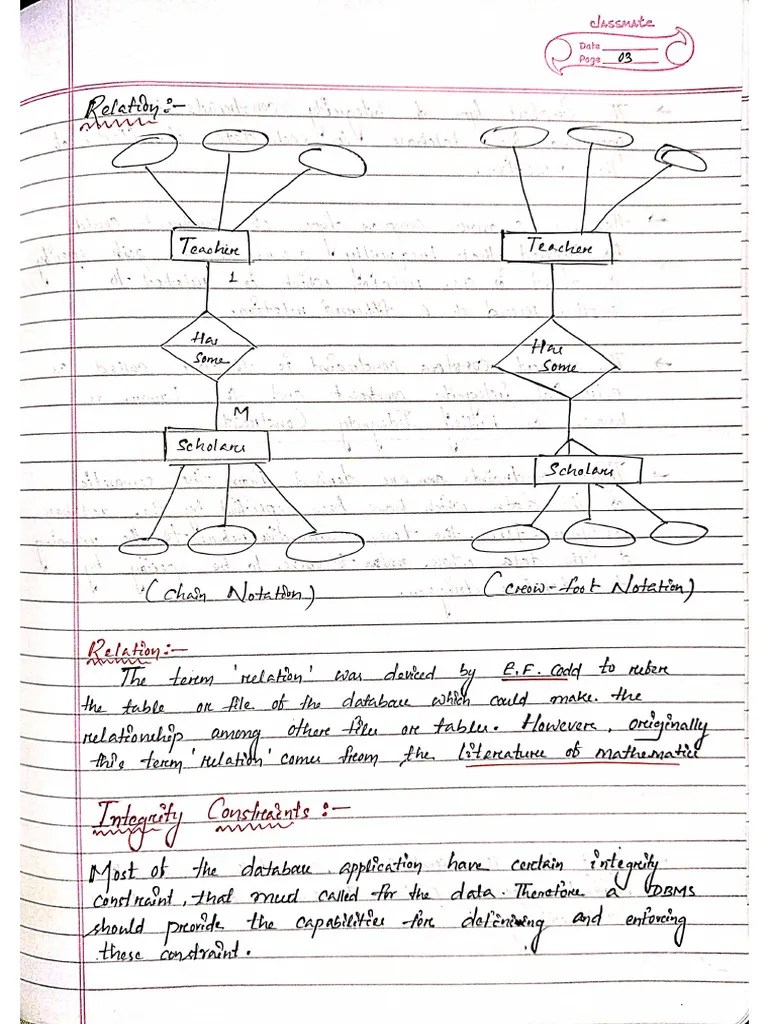 classmate
Date
Page 03
Relation:-
Teacher
Teacher
1
Has
some
Has
some
M
Scholars
Scholars
(Chain Notation)
(Crow-foot Notation)
Relation:-
The term 'relation' was deviced by E.F. Codd to refer
the table or file of the database which could make the
relationship among other files or tables. However, originally
this term 'relation' comes from the literature of mathematics
Integrity Constraints :-
Most of the database application have certain integrity
constraint, that must called for the data. Therefore a DBMS
should provide the capabilities for definining and enforcing
these constraint.